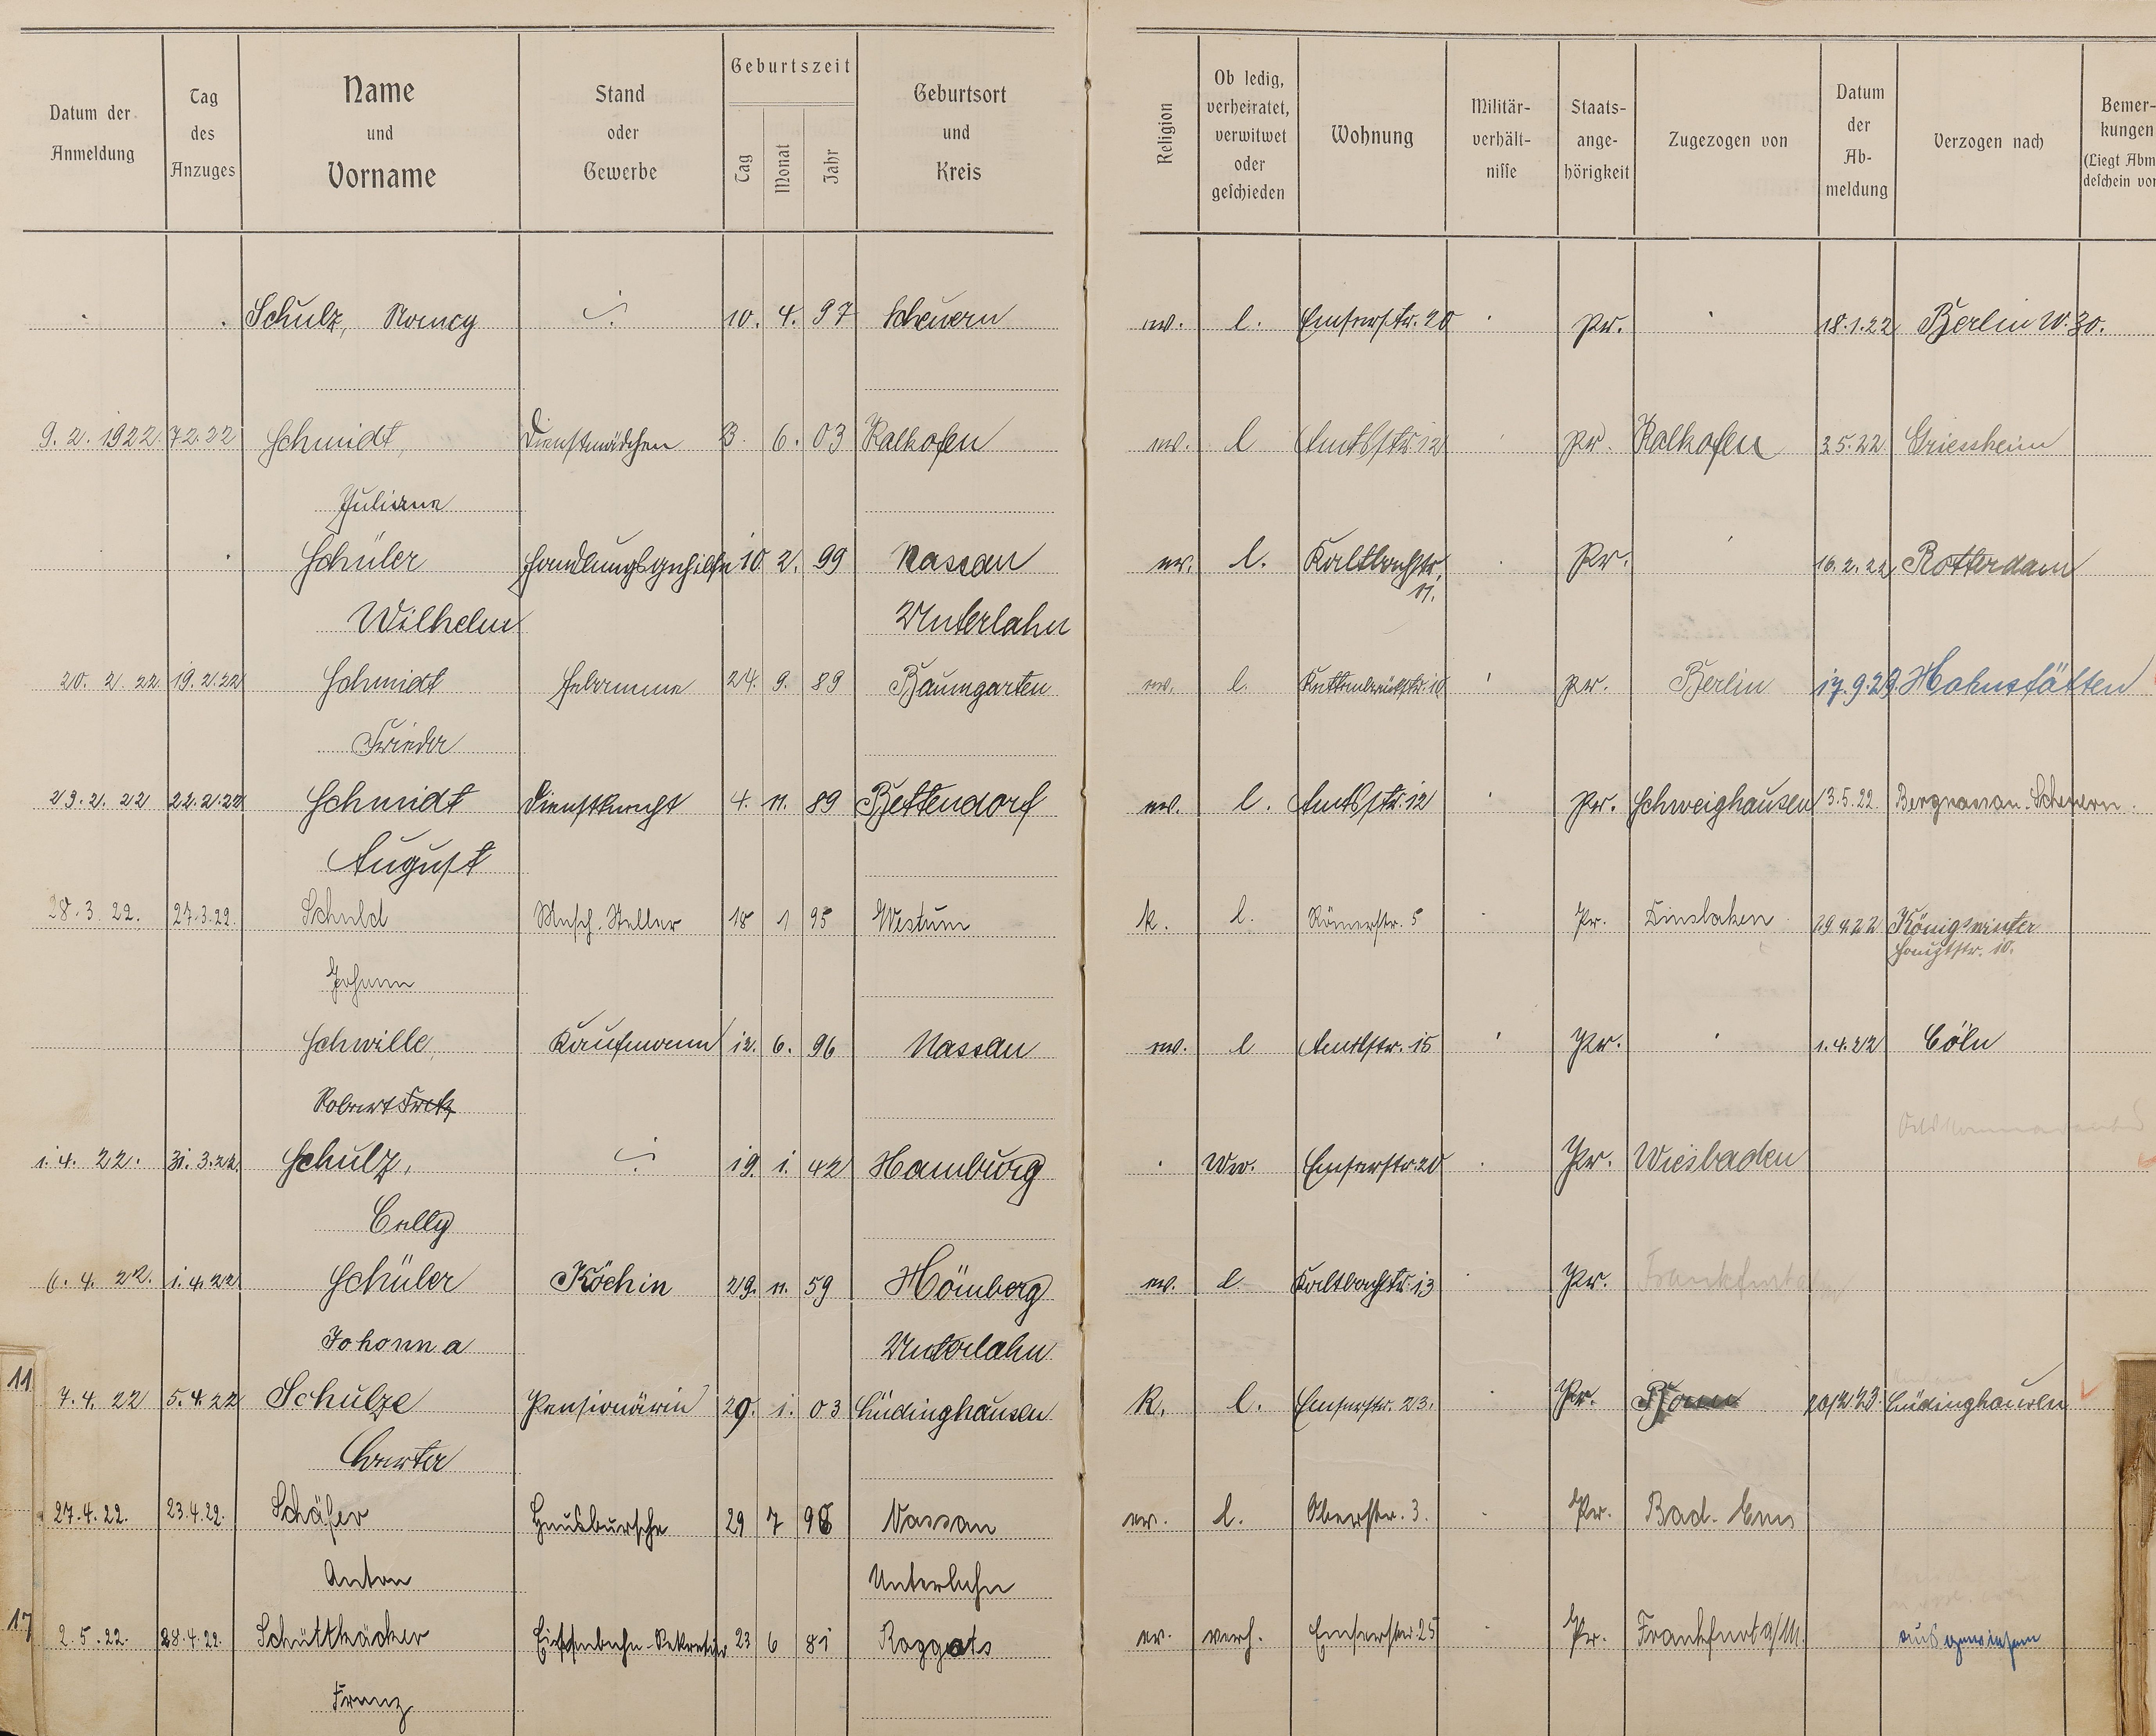 Datum der Anmeldung | Tag des Anzuges | Name und Vorname | Stand oder Gewerbe | Geburtszeit Tag Monat Jahr | Geburtsort und Kreis | Religion | Ob ledig, verheiratet, verwitwet oder geschieden | Wohnung | Militär-verhält-nisse | Staats-ange-hörigkeit | Zugezogen von | Datum der Ab-meldung | Verzogen nach | Bemer-kungen (Liegt Abm deschein vor
Schulz, 10. 4. 97 Scheuern ev. l. Emserstr. 20 Pr. 18.1.22 Berlin W. 30.
9. 2. 1922 7.2.22 Schmidt, Dienstmädchen 3. 6. 03 Kalkofen ev. l Amtsstr. 12 Pr. Kalkofen 3.5.22 Griessheim
Juliane
Schüler Handlungsgehilfe 10. 2. 99 Nassau ev. l. Kaltbachstr. 11. Pr. 16.2.22 Rotterdam
Wilhelm Unterlahn
20. 2. 22 19.2.22 Schmidt Hebamme 24. 9. 89 Baumgarten ev. l. Pr. Berlin 17.9.29 Hahnstätten
Frieda
23. 2. 22 22.2.22 Schmidt Dienstknecht 4. 11. 89 Bettendorf ev. l. Amtsstr. 12 Pr. Schweighausen 3.5.22 Bergnassau-Scheuern.
August
28. 3. 22. 27.3.22. Schuld 18 1 95 Westum k. l. Römerstr. 5 Pr. Dinslaken 29.4.22 Königswinter
Hauptstr. 10.
Johann
Schwille, Kaufmann 12. 6. 96 Nassau ev. l Amtsstr. 15 Pr. 1.4.22 Cöln
Robert Fritz
1. 4. 22. 31.3.22 Schulz, 19. 1. 42 Hamburg Ww. Emserstr. 20 Pr. Wiesbaden
Cally
6. 4. 22. 1.4.22 Schüler Köchin 29. 11. 59 Hömberg ev. l Kaltbachstr. 13 Pr.
Johanna Unterlahn
11
7. 4. 22 5.4.22 Schulze Pensionärin 29. 1. 03 Lüdinghausen K. l. Emserstr. 23. Pr. Bonn Lüdinghausen
27.4.22. 23.4.22. Schäfer Hausbursche 29 7 98 Nassau ev. l. Oberstr. 3. Pr. Bad-Ems
Anton Unterlahn
17
2.5.22. 28.4.22. Schüttkäcker Eisenbahn-Sekretär 23 6 81 ev. verh. Emserstr. 25 Pr. Frankfurt a/M.
Franz